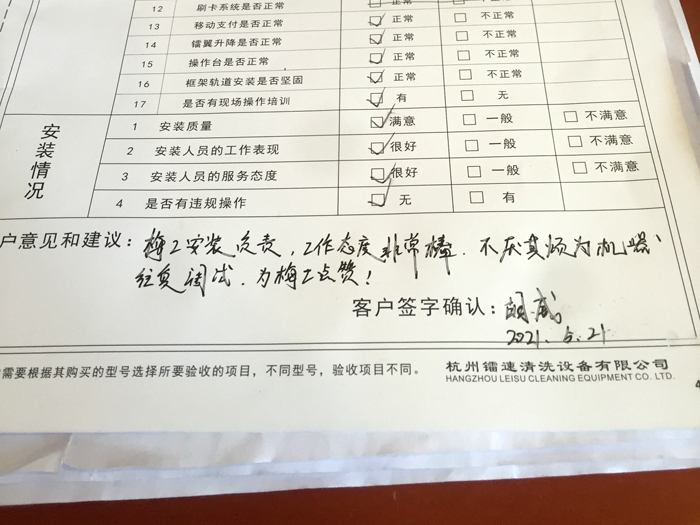 12 刷卡系统是否正常 正常 不正常
13 移动支付是否正常 正常 不正常
14 镭翼升降是否正常 正常 不正常
15 操作台是否正常 正常 不正常
16 框架轨道安装是否坚固 正常 不正常
17 是否有现场操作培训 有 无
安装情况
1 安装质量 满意 一般 不满意
2 安装人员的工作表现 很好 一般 不满意
3 安装人员的服务态度 很好 一般 不满意
4 是否有违规操作 无 有
户意见和建议：梅工安装负责，工作态度非常棒．不厌其烦为机器
往复调试．为梅工点赞！
客户签字确认：
2021．6．21
需要根据其购买的型号选择所要验收的项目，不同型号，验收项目不同。
杭州镭速清洗设备有限公司
HANGZHOU LEISU CLEANING EQUIPMENT CO. LTD.
4